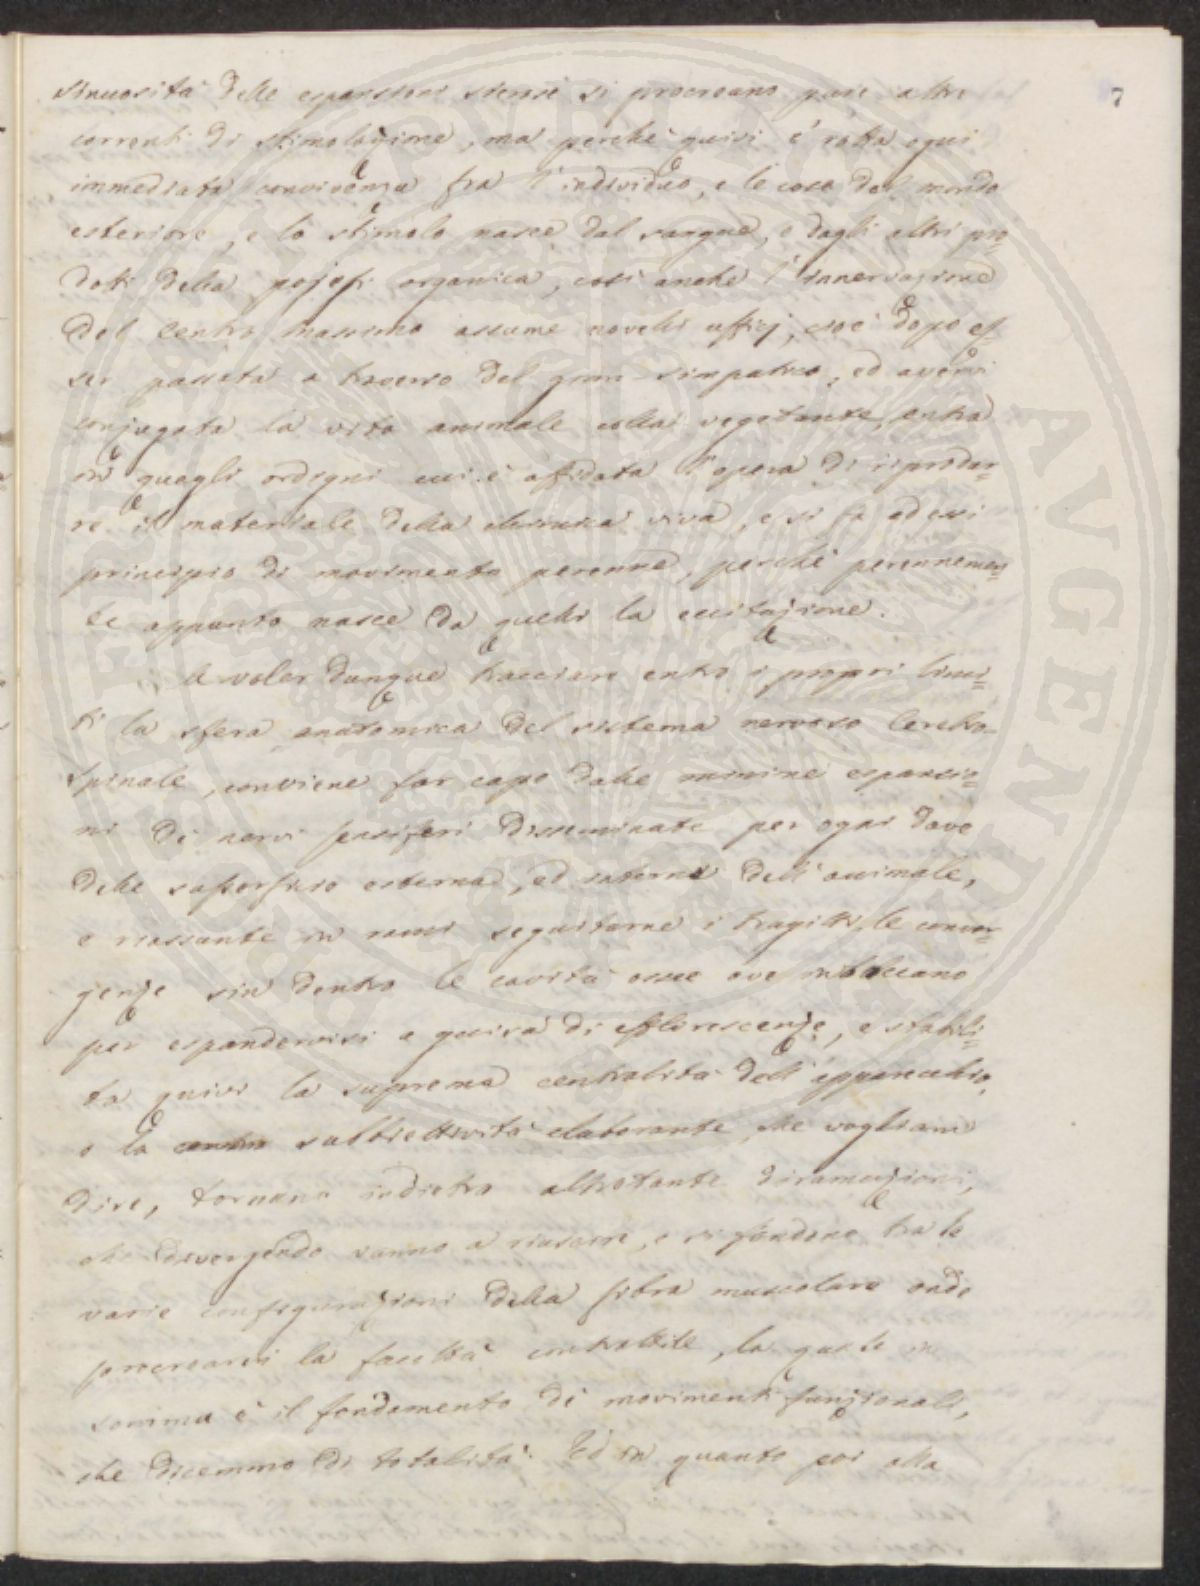 7
sinuosità delle espansioni stesse si procreano pure altre
correnti di stimolazione, ma perchè quivi è rotta ogni
immediata convivenza fra l'individuo, e le cose del mondo
esteriore, e lo stimolo nasce dal sangue, e dagli altri pro=
dotti della organica, così anche l'innervazione
del Centro massimo assume novelli ufficj, cioè dopo es=
ser passata a traverso del gran-simpatico, ed avervi
conjugata la vita animale colla vegetante, entra
in quegli ordegni cui è affidata l'opera di riprodur=
re il materiale della viva, e si fa ad essi
principio di movimento perenne, perchè perennemen=
te appunto nasce da quelli la eccitazione.
A voler dunque tracciare entro i proprj limi=
ti la sfera anatomica del sistema nervoso Cerebro-
spinale, conviene far capo dalle minime espansio=
ni di nervi sensiferi disseminate per ogni dove
delle superficie esterna, ed interna dell'animale,
e riassunte in rami seguitarne i tragitti, le conver=
genze sin dentro le cavità ossee ove imboccano
per espandervisi a guisa di efflorescenze, e stabili=
ta quivi la suprema centralità dell'apparecchio,
o la subbiettività elaborante che vogliam
dire, tornano indietro altrotante diramazioni,
che divergendo vanno a riuscire, e si fondono tra le
varie configurazioni della fibra muscolare onde
procrearvi la facoltà contrattile, la quale in
somma è il fondamento di movimenti funzionali,
che dicemmo di totalità. Ed in quanto poi alla
PUBLICAE AVGENDAE